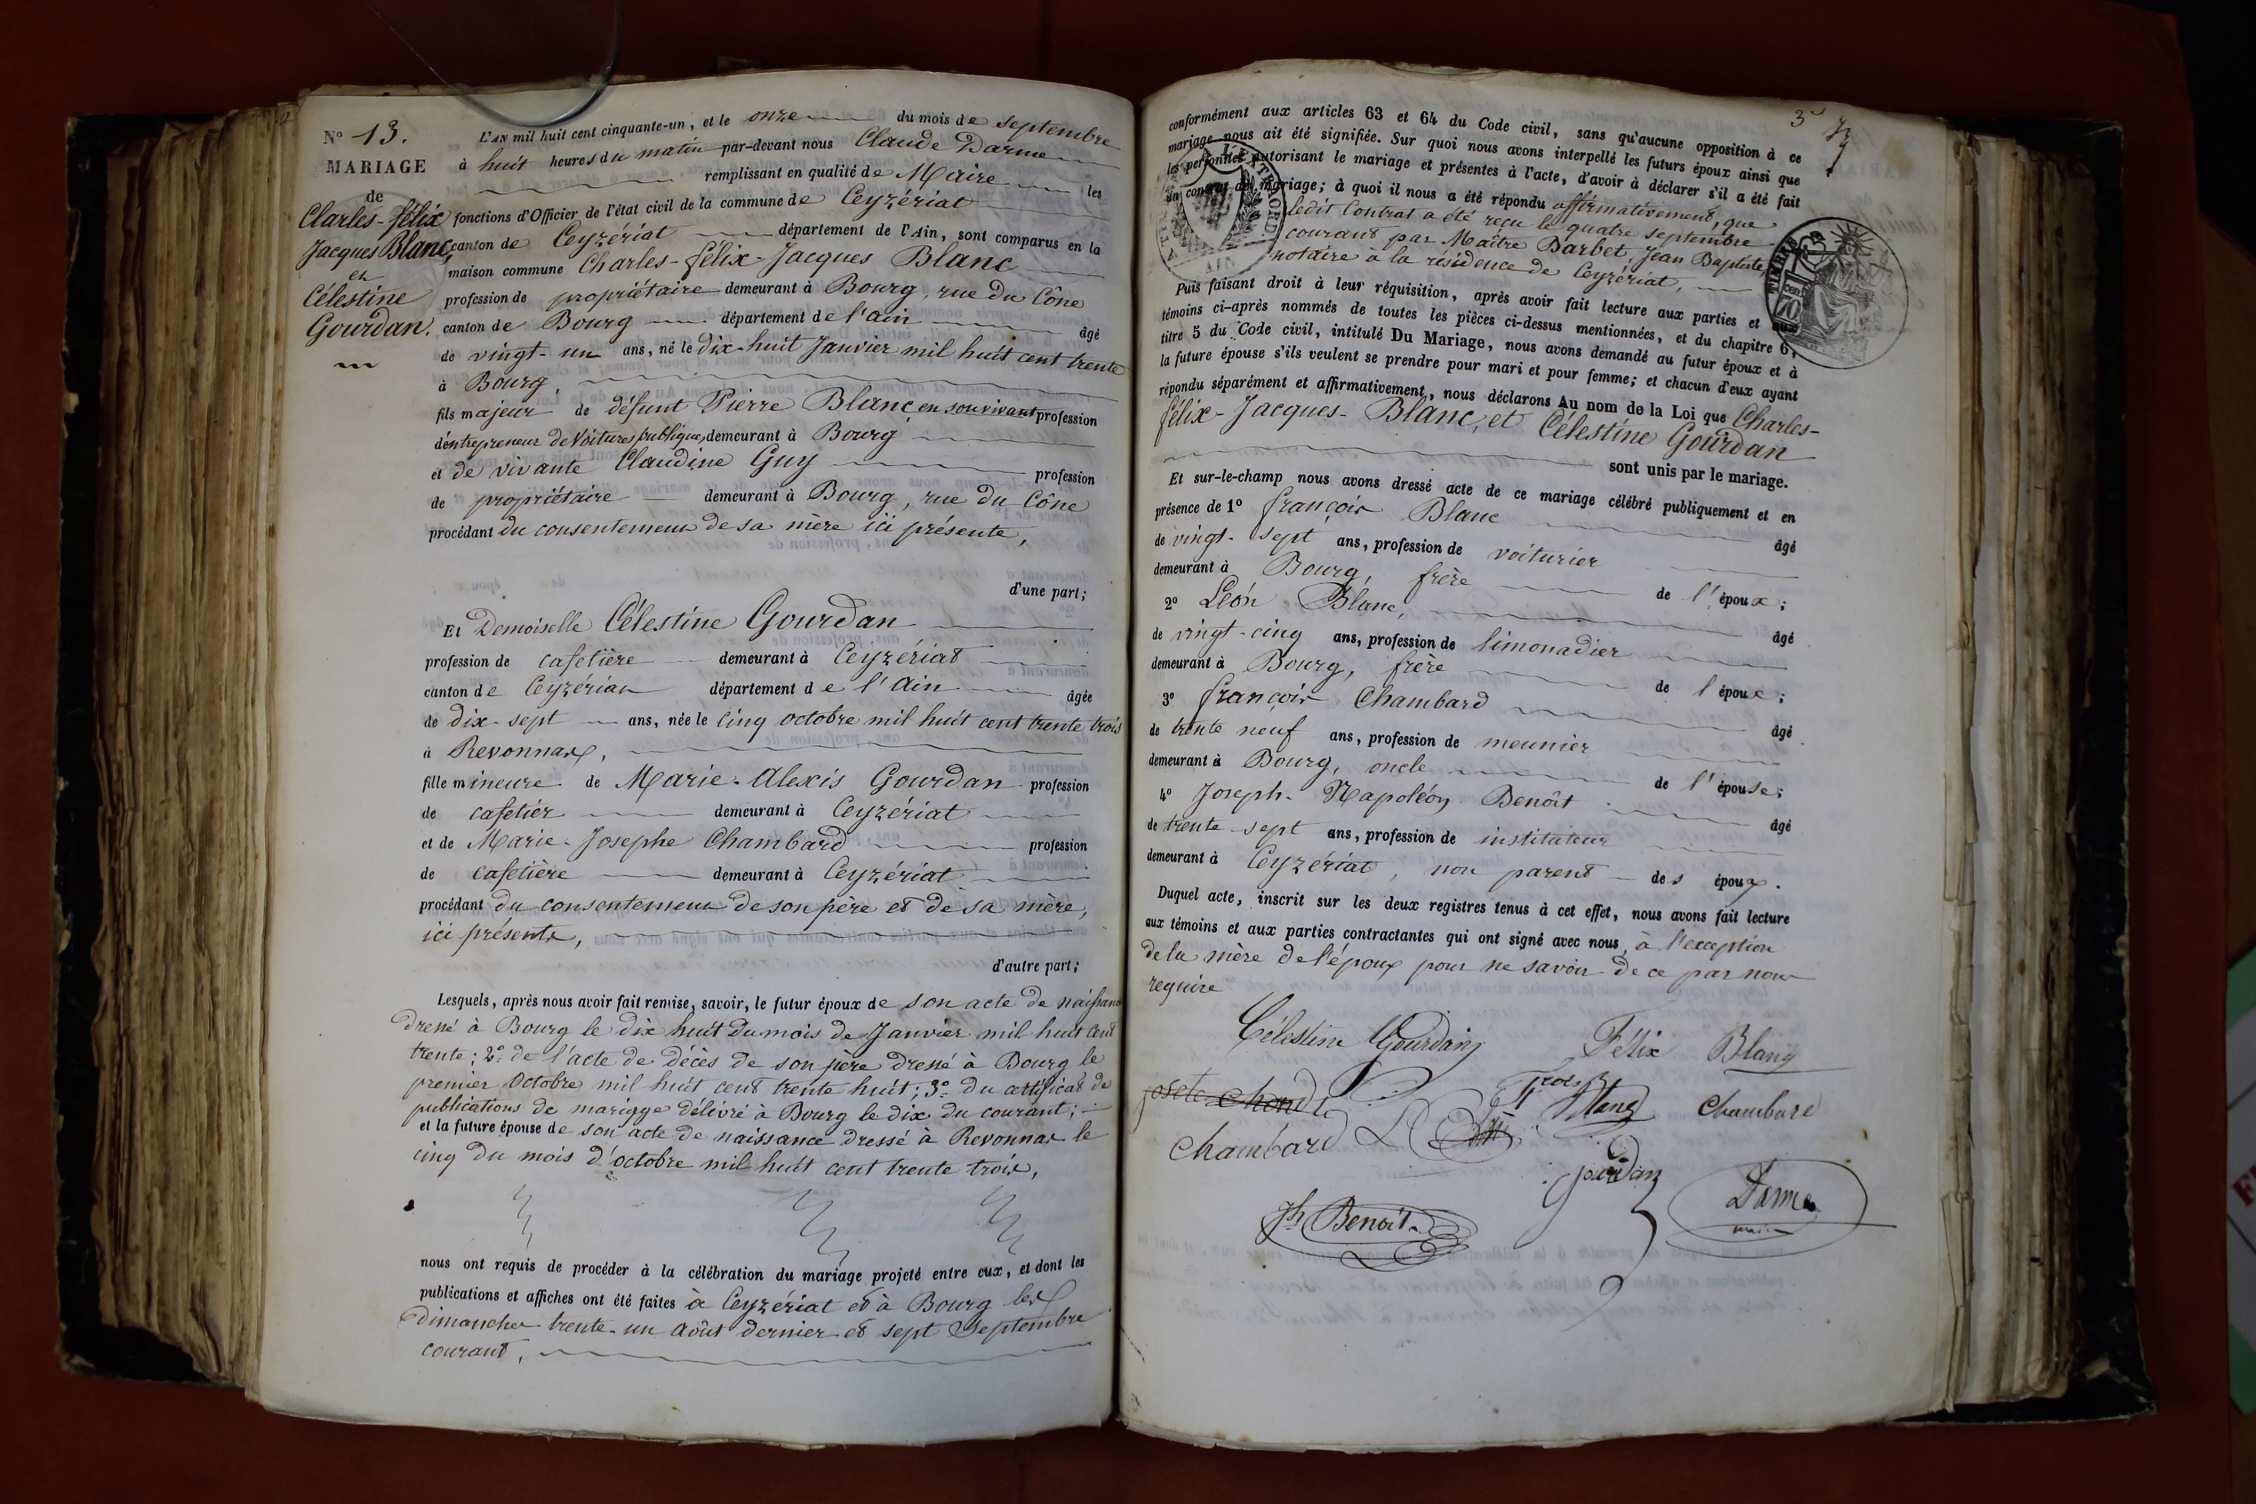 N° 13.
MARIAGE
de
Charles-félix
Jacques Blanc,
et
Célestine
Gourdan.
L'AN mil huit cent cinquante-un, et le onze du mois de septembre
à huit heures du matin par-devant nous Claude Darme
remplissant en qualité de Maire les
fonctions d'Officier de l'état civil de la commune de Ceyzériat
canton de Ceyzériat département de l'Ain, sont comparus en la
maison commune Charles-félix-Jacques Blanc
profession de propriétaire demeurant à Bourg, rue du Cône
canton de Bourg département de l'ain âgé
de vingt-un ans, né le dix-huit Janvier mil huit cent trente
à Bourg,
fils majeur de défunt Pierre Blanc en son vivant profession
d'entrepreneur de Voitures publiques, demeurant à Bourg
et de vivante Claudine Guy profession
de propriétaire demeurant à Bourg, rue du Cône
procédant du consentement de sa mère ici présente,
d'une part;
Et Demoiselle Célestine Gourdan
profession de cafetière demeurant à Ceyzériat
canton de Ceyzériat département de l'ain âgée
de dix-sept ans, née le cinq octobre mil huit cent trente trois
à Revonnas,
fille mineure de Marie-Alexis Gourdan profession
de cafetier demeurant à Ceyzériat
et de Marie-Josephe Chambard profession
de cafetière demeurant à Ceyzériat
procédant du consentement de son père et de sa mère,
ici présents,
d'autre part;
Lesquels, après nous avoir fait remise, savoir, le futur époux de son acte de naissance
dressé à Bourg le dix huit du mois de Janvier mil huit cent
trente; 2° de l'acte de décès de son père dressé à Bourg le
premier Octobre mil huit cent trente huit; 3° du certificat de
publications de mariage délivré à Bourg le dix du courant;
et la future épouse de son acte de naissance dressé à Revonnas le
cinq du mois d'octobre mil huit cent trente trois,
nous ont requis de procéder à la célébration du mariage projeté entre eux, et dont les
publications et affiches ont été faites à Ceyzériat et à Bourg les
dimanches trente-un août dernier et sept Septembre
courant,
conformément aux articles 63 et 64 du Code civil, sans qu'aucune opposition à ce
mariage nous ait été signifiée. Sur quoi nous avons interpellé les futurs époux ainsi que
les personnes autorisant le mariage et présentes à l'acte, d'avoir à déclarer s'il a été fait
un contrat de mariage; à quoi il nous a été répondu affirmativement, que
ledit Contrat a été reçu le quatre septembre
courant par Maître Barbet, Jean Baptiste,
notaire à la résidence de Ceyzériat,
L'EXTRAORD.
TIMBRE
70 cent
Puis faisant droit à leur réquisition, après avoir fait lecture aux parties et aux
témoins ci-après nommés de toutes les pièces ci-dessus mentionnées, et du chapitre 6,
titre 5 du Code civil, intitulé Du Mariage, nous avons demandé au futur époux et à
la future épouse s'ils veulent se prendre pour mari et pour femme; et chacun d'eux ayant
répondu séparément et affirmativement, nous déclarons Au nom de la Loi que Charles-
félix-Jacques-Blanc, et Célestine Gourdan
sont unis par le mariage.
Et sur-le-champ nous avons dressé acte de ce mariage célébré publiquement et en
présence de 1° françois Blanc âgé
de vingt-sept ans, profession de voiturier
demeurant à Bourg, frère de l'époux;
2° Léon Blanc, âgé
de vingt-cinq ans, profession de limonadier
demeurant à Bourg, frère de l'époux;
3° françois Chambard âgé
de trente neuf ans, profession de meunier
demeurant à Bourg, oncle de l'épouse;
4° Joseph-Napoléon Benoît âgé
de trente-sept ans, profession de instituteur
demeurant à Ceyzériat, non parent des époux.
Duquel acte, inscrit sur les deux registres tenus à cet effet, nous avons fait lecture
aux témoins et aux parties contractantes qui ont signé avec nous, à l'exception
de la mère de l'époux pour ne savoir de ce par nous
requise
Célestine Gourdan Félix Blanc
Blanc Chambard
Chambard
Gourdan
Jh Benoit Darme
maire